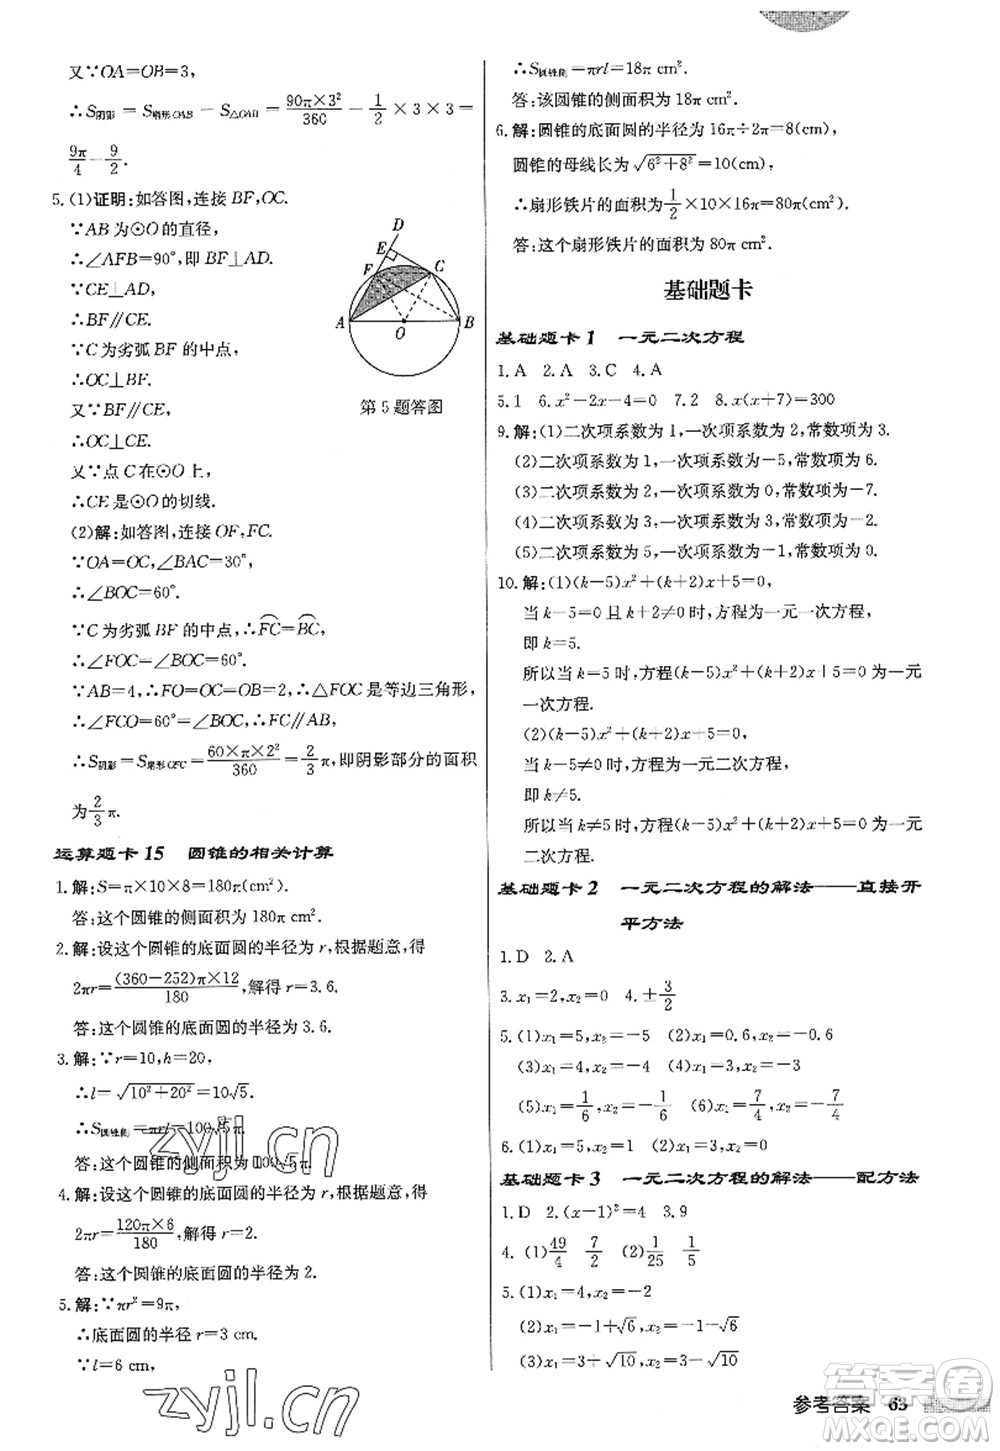 又∵OA=OB=3,
∴S阴影=S扇形OAB-S△OAB=90π×3²/360-1/2×3×3=
9π/4-9/2.
5.(1)证明:如答图,连接BF,OC.
∵AB为⊙O的直径,
∴∠AFB=90°,即BF⊥AD.
∵CE⊥AD,
∴BF∥CE.
∵C为劣弧BF的中点,
∴OC⊥BF.
又∵BF∥CE,
∴OC⊥CE.
又∵点C在⊙O上,
∴CE是⊙O的切线.
D
E
F
C
A
O
B
第5题答图
(2)解:如答图,连接OF,FC.
∵OA=OC,∠BAC=30°,
∴∠BOC=60°.
∵C为劣弧BF的中点,∴FC⌒=BC⌒,
∴∠FOC=∠BOC=60°.
∵AB=4,∴FO=OC=OB=2,∴△FOC是等边三角形,
∴∠FCO=60°=∠BOC,∴FC∥AB,
∴S阴影=S扇形OFC=60×π×2²/360=2/3π,即阴影部分的面积
为2/3π.
运算题卡15 圆锥的相关计算
1.解:S=π×10×8=180π(cm²).
答:这个圆锥的侧面积为180π cm².
2.解:设这个圆锥的底面圆的半径为r,根据题意,得
2πr=(360-252)π×12/180,解得r=3.6.
答:这个圆锥的底面圆的半径为3.6.
3.解:∵r=10,h=20,
∴l=√(10²+20²)=10√5.
∴S圆锥侧=πrl=100√5π.
答:这个圆锥的侧面积为100√5π.
4.解:设这个圆锥的底面圆的半径为r,根据题意,得
2πr=120π×6/180,解得r=2.
答:这个圆锥的底面圆的半径为2.
5.解:∵πr²=9π,
∴底面圆的半径r=3 cm.
∵l=6 cm,
∴S圆锥侧=πrl=18π cm².
答:该圆锥的侧面积为18π cm².
6.解:圆锥的底面圆的半径为16π÷2π=8(cm)
圆锥的母线长为√(6²+8²)=10(cm)
∴扇形铁片的面积为1/2×10×16π=80π(cm²).
答:这个扇形铁片的面积为80π cm².
基础题卡
基础题卡1 一元二次方程
1.A 2.A 3.C 4.A
5.1 6.x²-2x-4=0 7.2 8.x(x+7)=300
9.解:(1)二次项系数为1,一次项系数为2,常数项为3.
(2)二次项系数为1,一次项系数为-5,常数项为6.
(3)二次项系数为2,一次项系数为0,常数项为-7.
(4)二次项系数为3,一次项系数为3,常数项为2.
(5)二次项系数为5,一次项系数为-1,常数项为0.
10.解:(1)(k-5)x²+(k+2)x+5=0,
当k-5=0且k+2≠0时,方程为一元一次方程,
即k=5.
所以当k=5时,方程(k-5)x²+(k+2)x+5=0为一元
一次方程.
(2)(k-5)x²+(k+2)x+5=0,
当k-5≠0时,方程为一元二次方程,
即k≠5.
所以当k≠5时,方程(k-5)x²+(k+2)x+5=0为一元
二次方程.
基础题卡2 一元二次方程的解法——直接开
平方法
1.D 2.A
3.x₁=2,x₂=0 4.±3/2
5.(1)x₁=5,x₂=-5 (2)x₁=0.6,x₂=-0.6
(3)x₁=4,x₂=-4 (4)x₁=3,x₂=-3
(5)x₁=1/6,x₂=-1/6 (6)x₁=7/4,x₂=-7/4
6.(1)x₁=5,x₂=1 (2)x₁=3,x₂=-9
基础题卡3 一元二次方程的解法——配方法
1.D 2.(x-1)²=4 3.9
4.(1)49/4 7/2 (2)1/25 1/5
5.(1)x₁=4,x₂=2
(2)x₁=-1+√6,x₂=-1-√6
(3)x₁=3+√10,x₂=3-√10
zyjl.cn
zyjl.cn
答案圈
MXQE.COM
参考答案 63